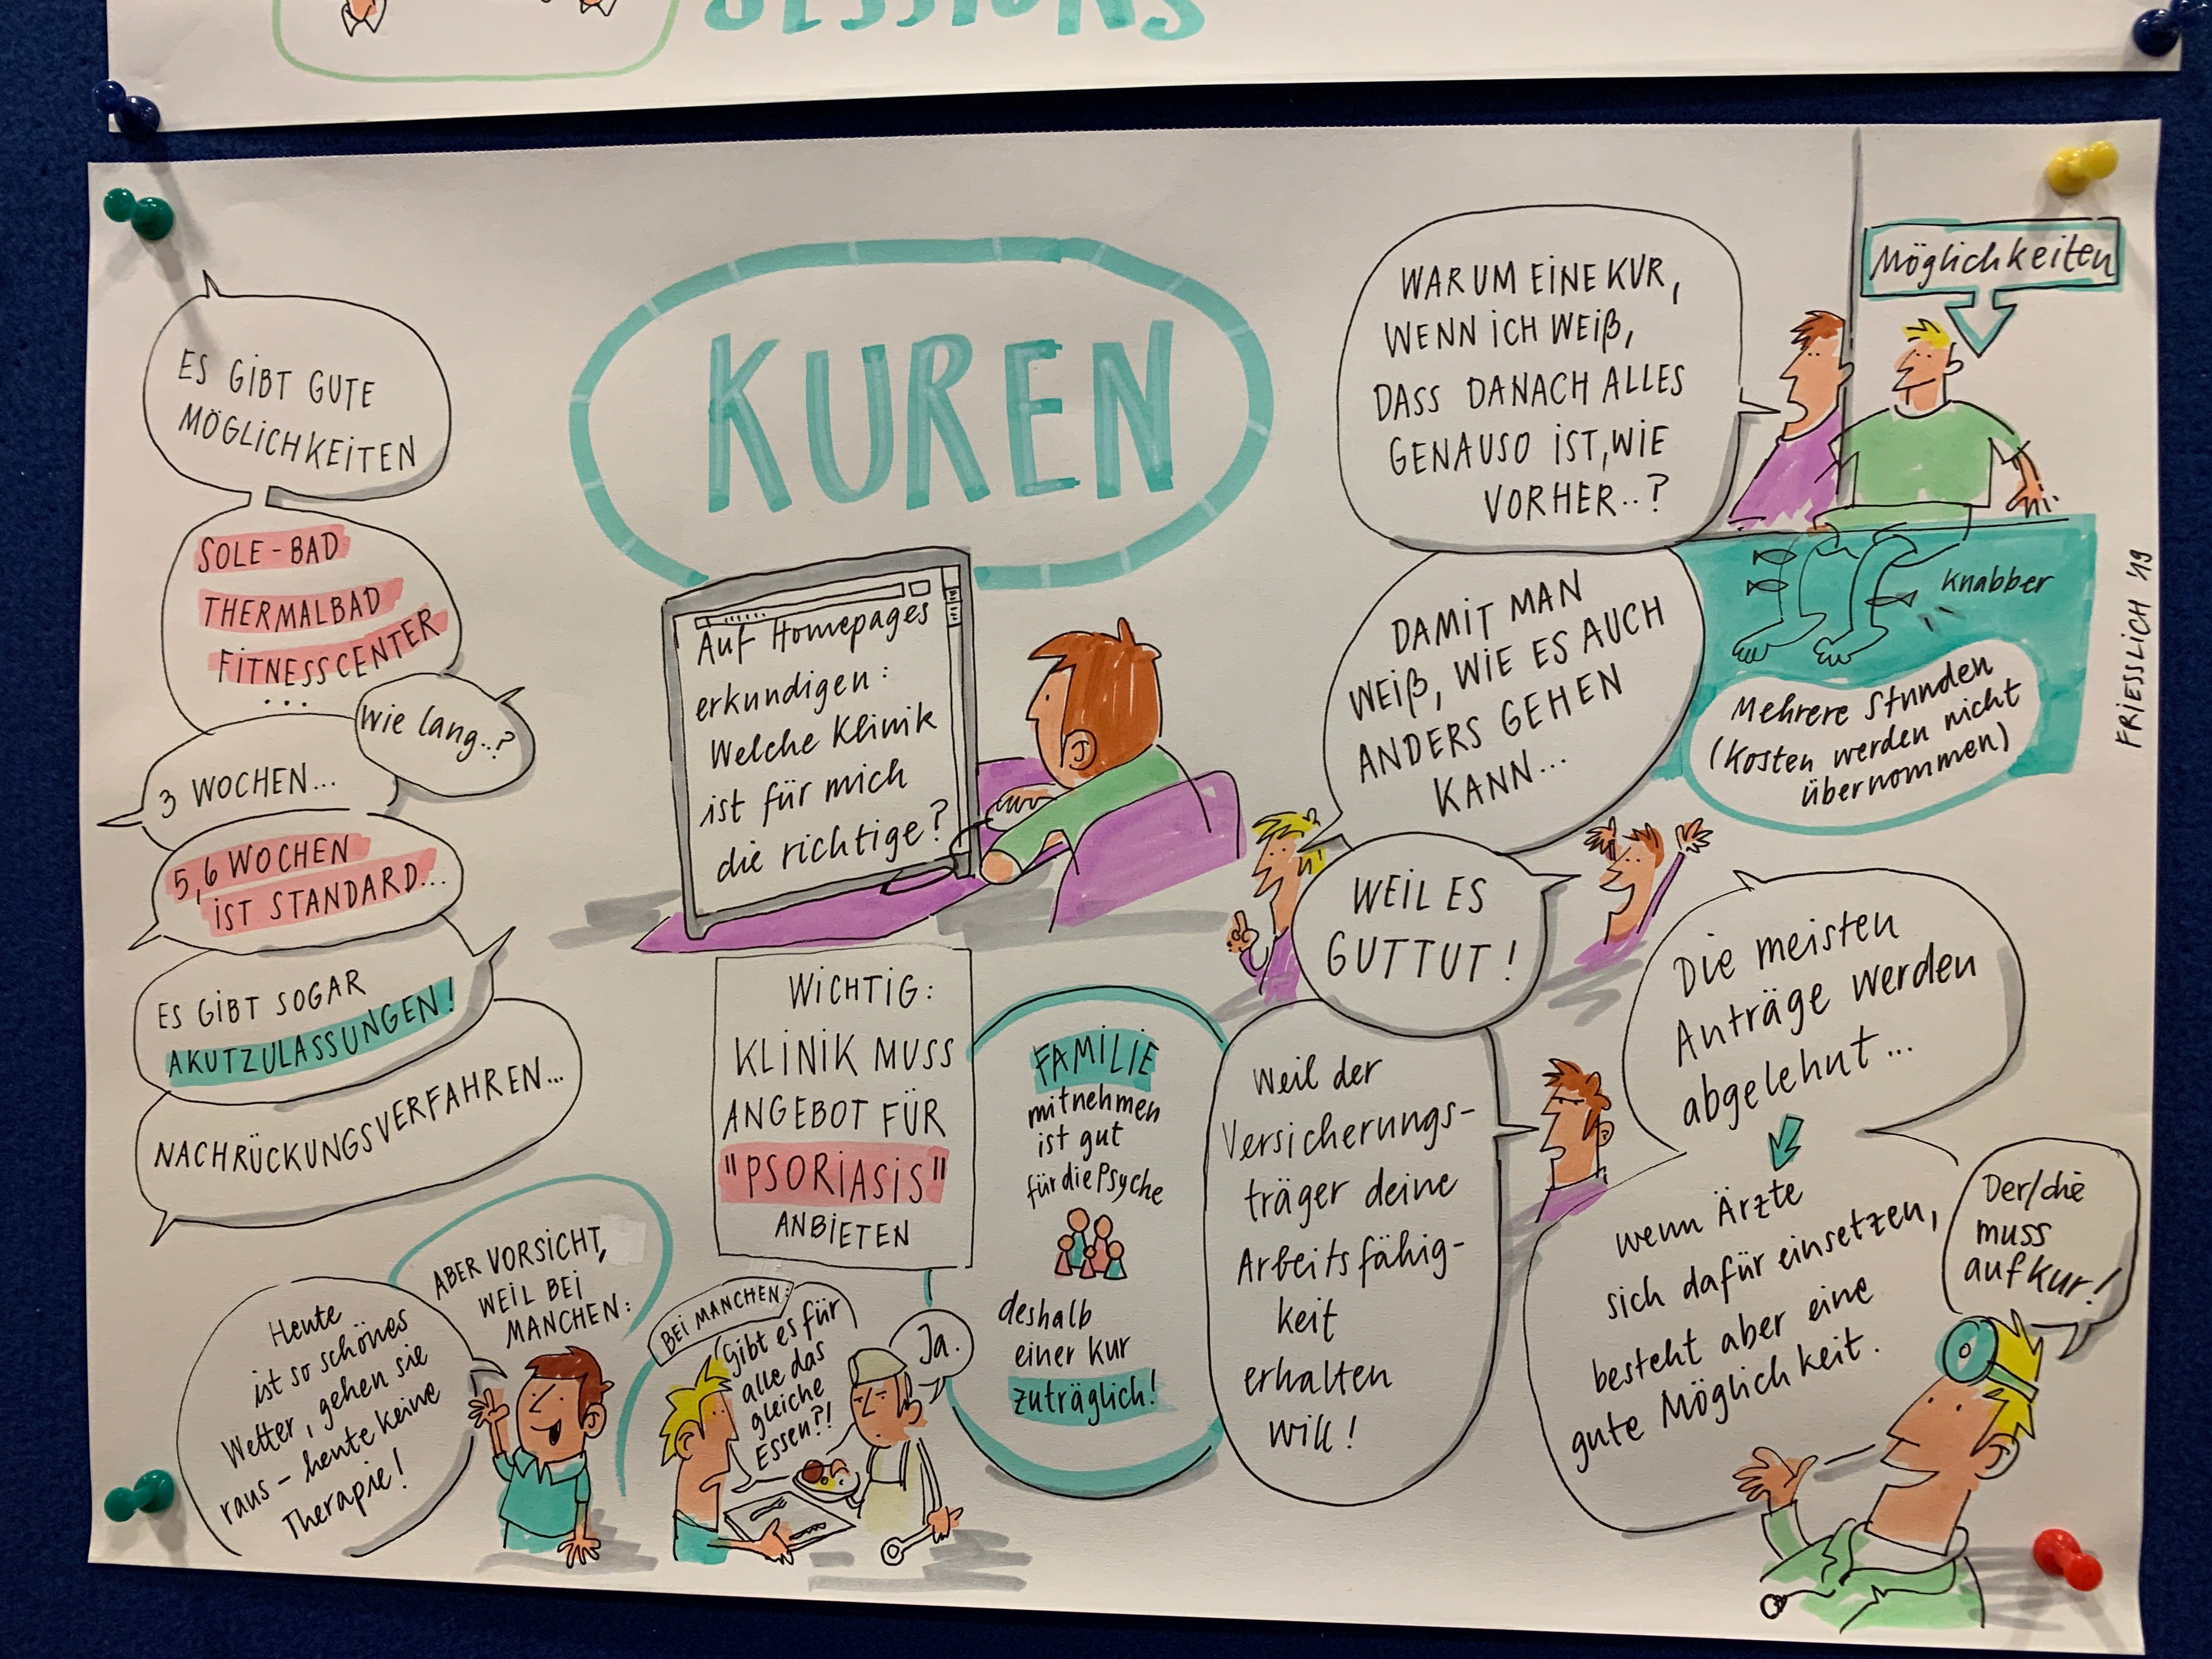 SESSIONS
KUREN
ES GIBT GUTE
MÖGLICHKEITEN
SOLE-BAD
THERMALBAD
FITNESSCENTER
...
Wie lang..?
3 WOCHEN...
5,6 WOCHEN
IST STANDARD...
ES GIBT SOGAR
AKUTZULASSUNGEN!
NACHRÜCKUNGSVERFAHREN...
ABER VORSICHT,
WEIL BEI
MANCHEN:
Heute
ist so schönes
Wetter, gehen sie
raus - heute keine
Therapie!
Auf Homepages
erkundigen:
Welche Klinik
ist für mich
die richtige?
WICHTIG:
KLINIK MUSS
ANGEBOT FÜR
"PSORIASIS"
ANBIETEN
BEI MANCHEN:
Gibt es für
alle das
gleiche
Essen?!
Ja.
FAMILIE
mitnehmen
ist gut
für die Psyche
deshalb
einer Kur
zuträglich!
WARUM EINE KUR,
WENN ICH WEIß,
DASS DANACH ALLES
GENAUSO IST, WIE
VORHER..?
DAMIT MAN
WEIß, WIE ES AUCH
ANDERS GEHEN
KANN...
WEIL ES
GUT TUT!
Weil der
Versicherungs-
träger deine
Arbeitsfähig-
keit
erhalten
will!
Möglichkeiten
Knabber
Mehrere Stunden
(Kosten werden nicht
übernommen)
FRIESSLICH '19
Die meisten
Anträge werden
abgelehnt...
wenn Ärzte
sich dafür einsetzen,
besteht aber eine
gute Möglichkeit.
Der/die
muss
auf Kur!